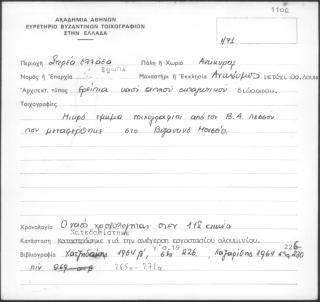 11ος
ΑΚΑΔΗΜΙΑ ΑΘΗΝΩΝ
ΕΥΡΕΤΗΡΙΟ ΒΥΖΑΝΤΙΝΩΝ ΤΟΙΧΟΓΡΑΦΙΩΝ
ΣΤΗΝ ΕΛΛΑΔΑ
Περιοχή Στερεά Ελλάδα Πόλη ή Χωριό Αντίκυρα
Νομός ή Επαρχία Βοιωτία Μοναστήρι ή Εκκλησία Ανώνυμος μετόχι Οσ. Λουκά
Αρχιτεκτ. τύπος Ερείπια ναού
Τοιχογραφίες
Μικρό τμήμα τοιχογραφίας από τον Β.Α. πεσσό
που μεταφέρθηκε στο Βυζαντινό Μουσείο.
Χρονολογία Ο ναός χρονολογείται στον 11ο αιώνα
Κατεδαφίστηκε
Κατάσταση Καταστράφηκε για την ανέγερση εργοστασίου αλουμινίου.
Βιβλιογραφία Χατζηδάκης 1964 β', 226, Λαζαρίδης 1964
πίν 265α-271α